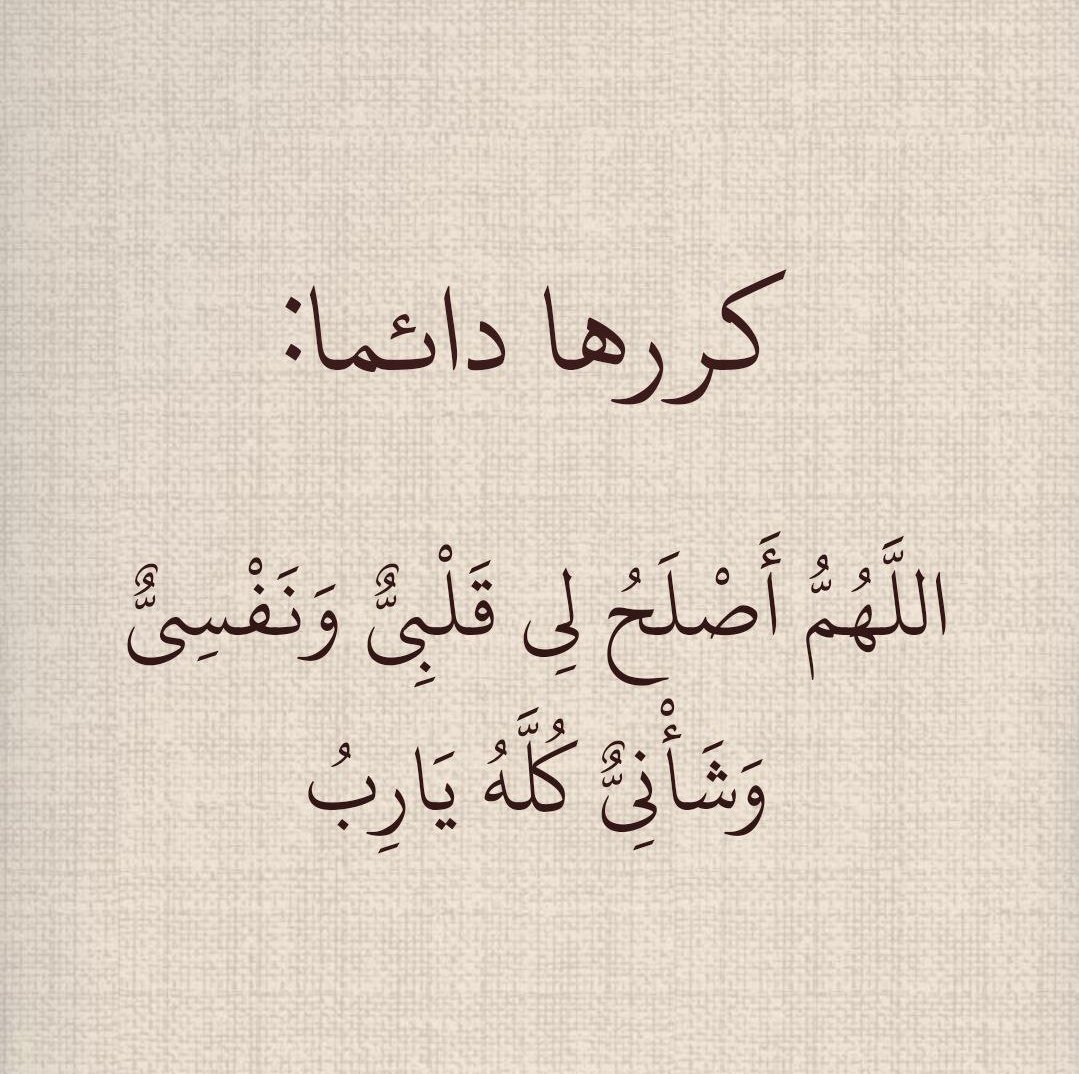 كررها دائما:
اللَّهُمُّ أَصْلَحُ لِي قَلْبِيٌّ وَنَفْسِيٌّ
وَشَأْنِيٌّ كُلَّهُ يَارِبُ